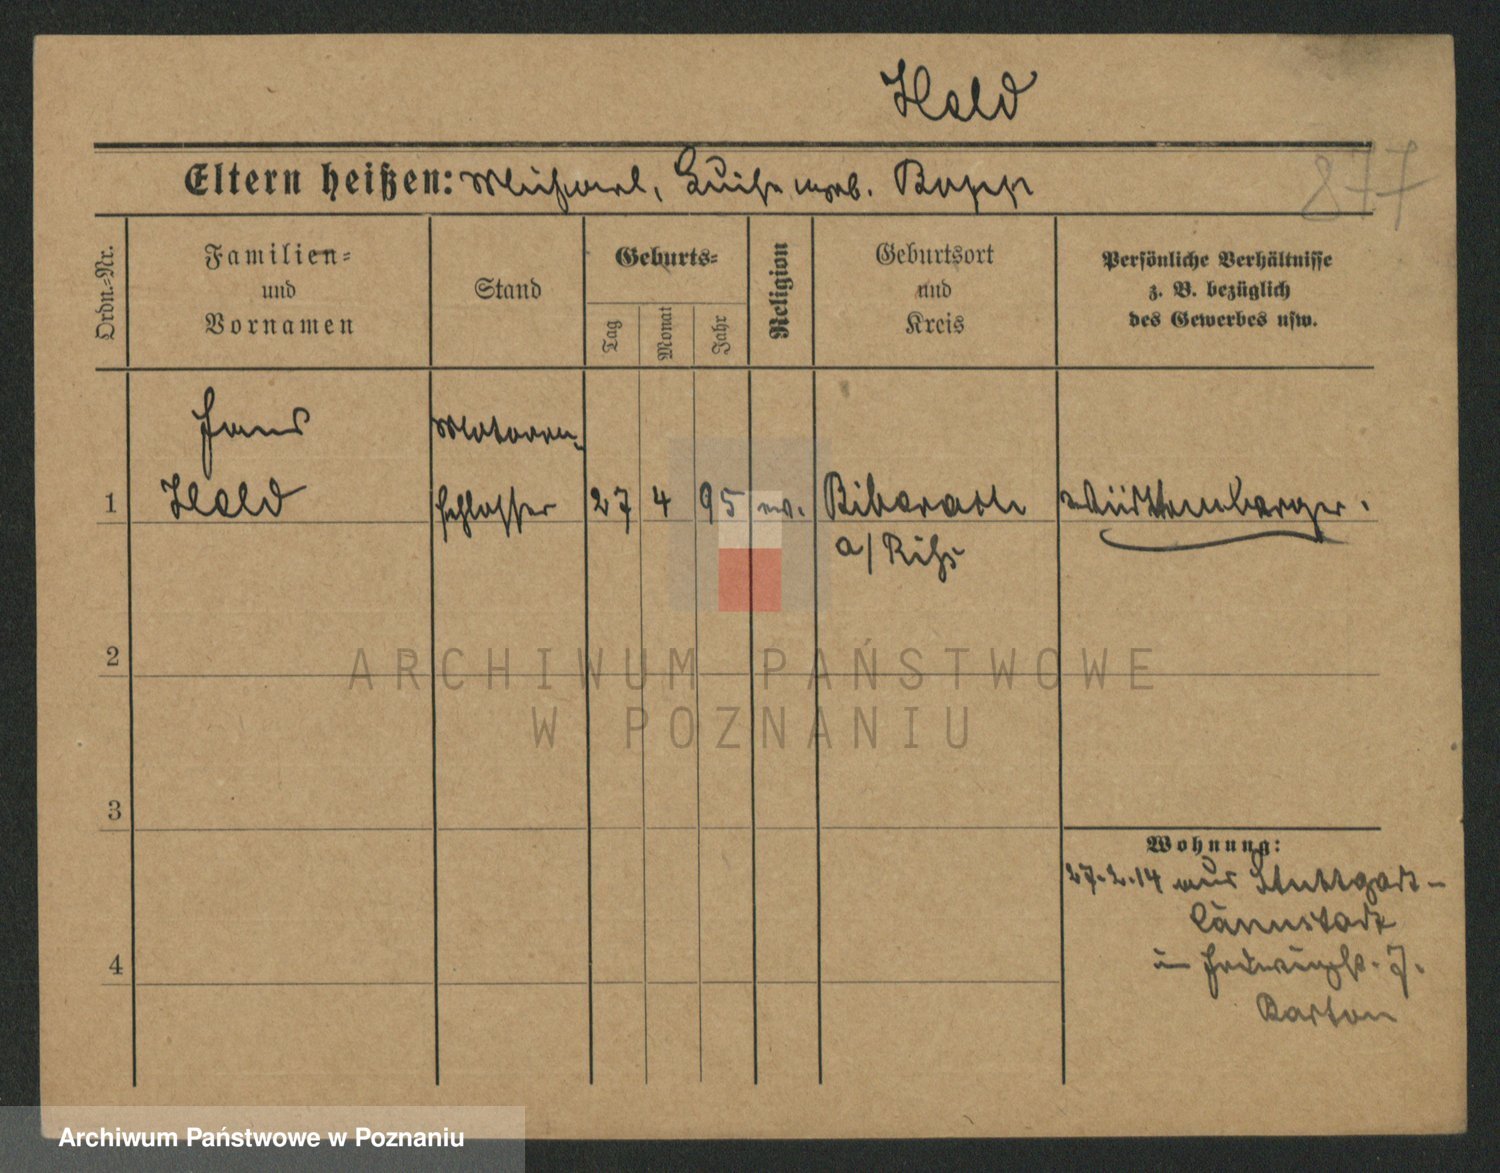 Hald
877
Eltern heißen: Michael, Luise geb. Bopp
Ordn.-Nr.
Familien-
und
Vornamen
Stand
Geburts-
Tag
Monat
Jahr
Religion
Geburtsort
und
Kreis
Persönliche Verhältnisse
z. B. bezüglich
des Gewerbes usw.
Hans
Motoren-
1 Hald schlosser 27 4 95 ev. Biberach Württemberger.
a/ Riß
2
ARCHIWUM PAŃSTWOWE
W POZNANIU
3
Wohnung:
27.2.14 aus Stuttgart-
Cannstadt
4
7.
Barton
Archiwum Państwowe w Poznaniu